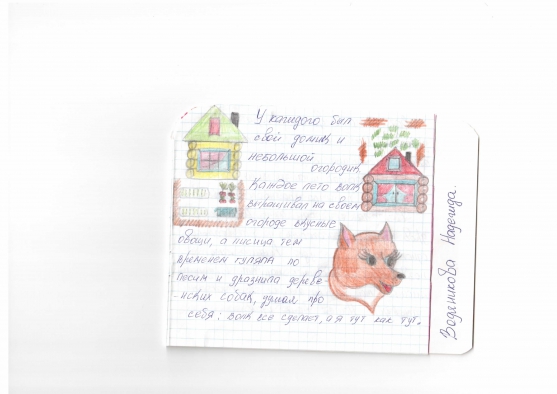 У каждого был
свой домик и
небольшой
огородик
Каждое лето волк
выращивал на своем
огороде вкусные
овощи, а лисица тем
временем гуляла по
лесам и дразнила дереве
-нских собак, узнал про
себя: волк все сделает, а я тут как тут.
Водяникова Надежда